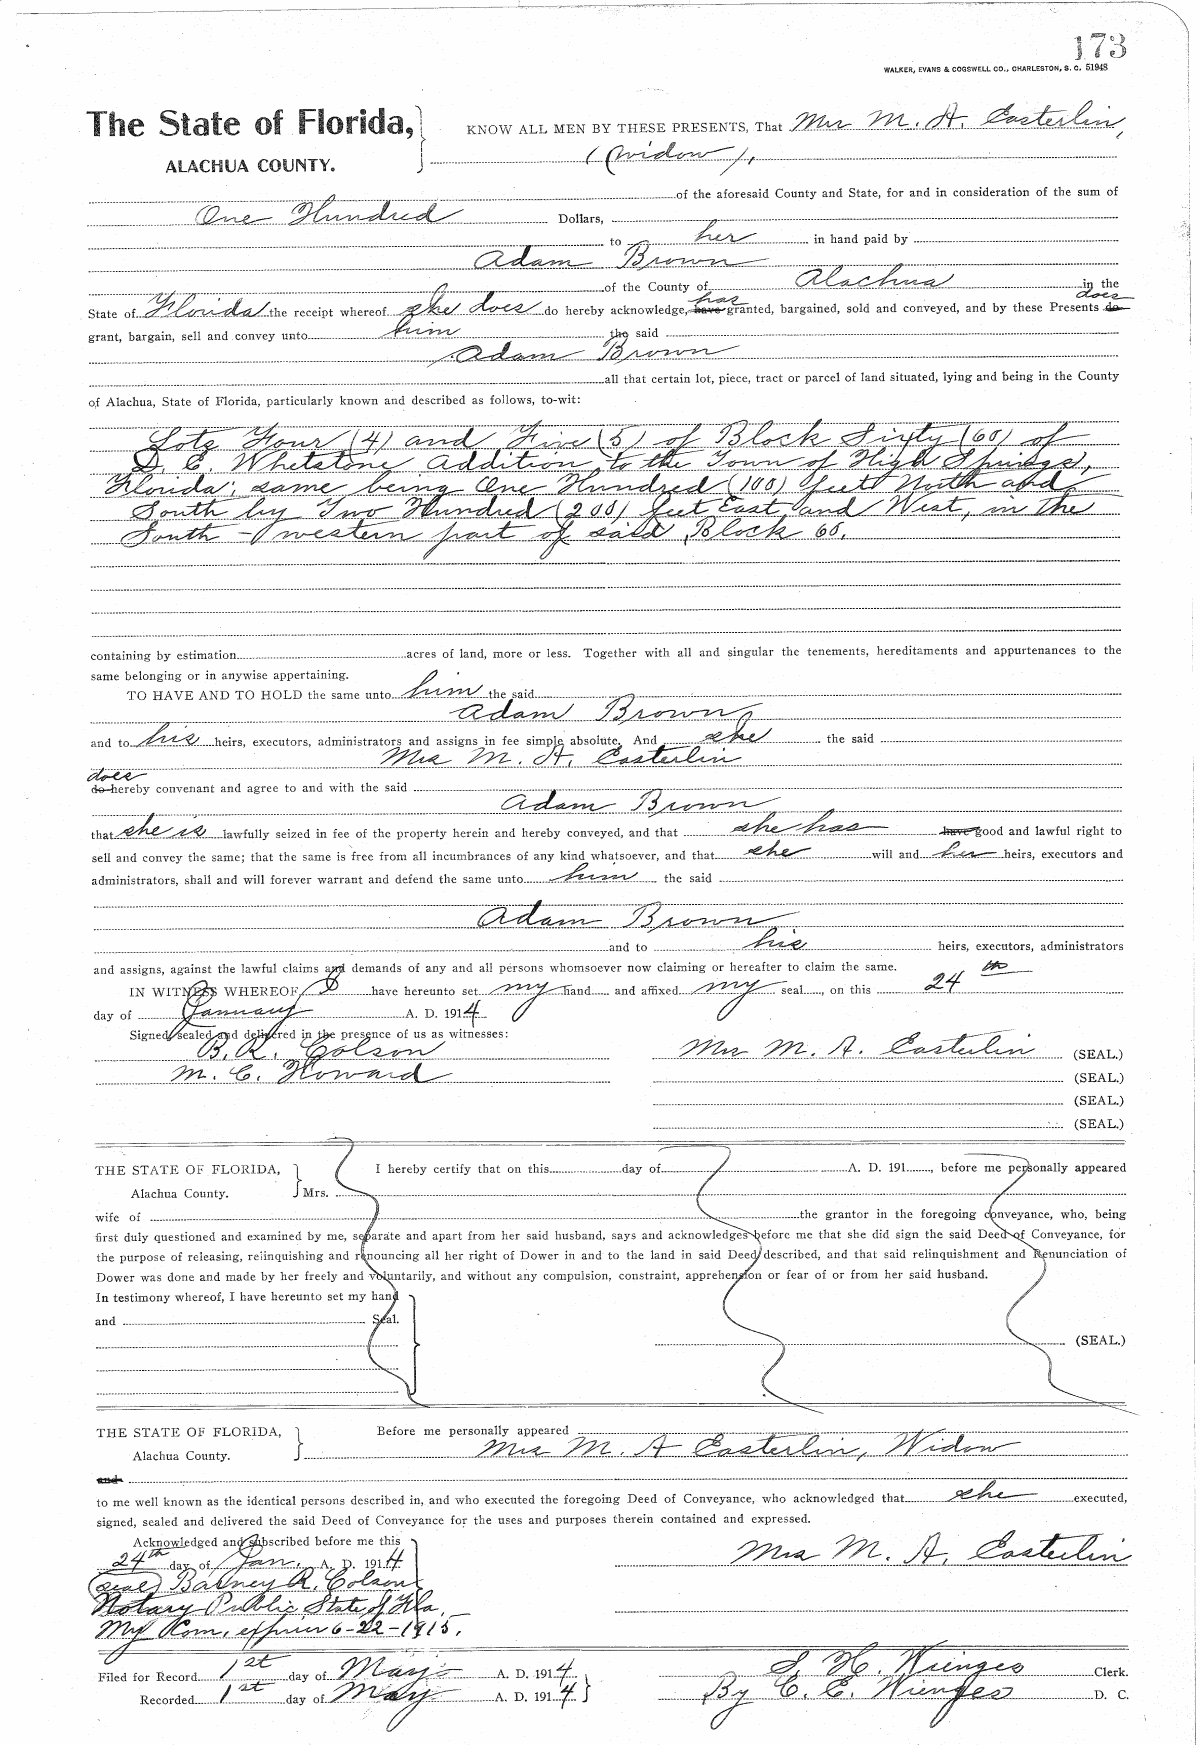 173
WALKER, EVANS & COGSWELL CO., CHARLESTON, S. C. 51948
The State of Florida,
ALACHUA COUNTY.
KNOW ALL MEN BY THESE PRESENTS, That Mrs M. A. Easterlin,
(widow),
of the aforesaid County and State, for and in consideration of the sum of
One Hundred Dollars,
to her in hand paid by
Adam Brown
of the County of Alachua in the
State of Florida the receipt whereof she does do hereby acknowledge, have has granted, bargained, sold and conveyed, and by these Presents do does
grant, bargain, sell and convey unto him the said
Adam Brown
all that certain lot, piece, tract or parcel of land situated, lying and being in the County
of Alachua, State of Florida, particularly known and described as follows, to-wit:
Lots Four (4) and Five (5) of Block Sixty (60) of
D. C. Whetstone Addition to the Town of High Springs,
Florida; same being One Hundred (100) feet North and
South by Two Hundred (200) feet East and West, in the
South-western part of said Block 60.
containing by estimation acres of land, more or less. Together with all and singular the tenements, hereditaments and appurtenances to the
same belonging or in anywise appertaining.
TO HAVE AND TO HOLD the same unto him the said
Adam Brown
and to his heirs, executors, administrators and assigns in fee simple absolute. And she the said
Mrs M. A. Easterlin
does
do hereby convenant and agree to and with the said
Adam Brown
that she is lawfully seized in fee of the property herein and hereby conveyed, and that she has have good and lawful right to
sell and convey the same; that the same is free from all incumbrances of any kind whatsoever, and that she will and her heirs, executors and
administrators, shall and will forever warrant and defend the same unto him the said
Adam Brown
and to his heirs, executors, administrators
and assigns, against the lawful claims and demands of any and all persons whomsoever now claiming or hereafter to claim the same.
IN WITNESS WHEREOF, I have hereunto set my hand and affixed my seal, on this 24th
day of January A. D. 1914
Signed, sealed and delivered in the presence of us as witnesses:
B. R. Colson Mrs M. A. Easterlin (SEAL.)
M. C. Howard (SEAL.)
(SEAL.)
(SEAL.)
THE STATE OF FLORIDA,
Alachua County.
I hereby certify that on this day of A. D. 191, before me personally appeared
Mrs.
wife of the grantor in the foregoing conveyance, who, being
first duly questioned and examined by me, separate and apart from her said husband, says and acknowledges before me that she did sign the said Deed of Conveyance, for
the purpose of releasing, relinquishing and renouncing all her right of Dower in and to the land in said Deed described, and that said relinquishment and Renunciation of
Dower was done and made by her freely and voluntarily, and without any compulsion, constraint, apprehension or fear of or from her said husband.
In testimony whereof, I have hereunto set my hand
and Seal.
(SEAL.)
THE STATE OF FLORIDA,
Alachua County.
Before me personally appeared
Mrs M. A Easterlin, Widow
and
to me well known as the identical persons described in, and who executed the foregoing Deed of Conveyance, who acknowledged that she executed,
signed, sealed and delivered the said Deed of Conveyance for the uses and purposes therein contained and expressed.
Acknowledged and subscribed before me this
24th day of Jan. A. D. 1914 Mrs M. A. Easterlin
(seal) Barney R. Colson
Notary Public, State of Fla.
My Com, expires 6-22-1915.
Filed for Record 1st day of May A. D. 1914 S. H. Wienges Clerk.
Recorded 1st day of May A. D. 1914 By C. E. Wienges D. C.